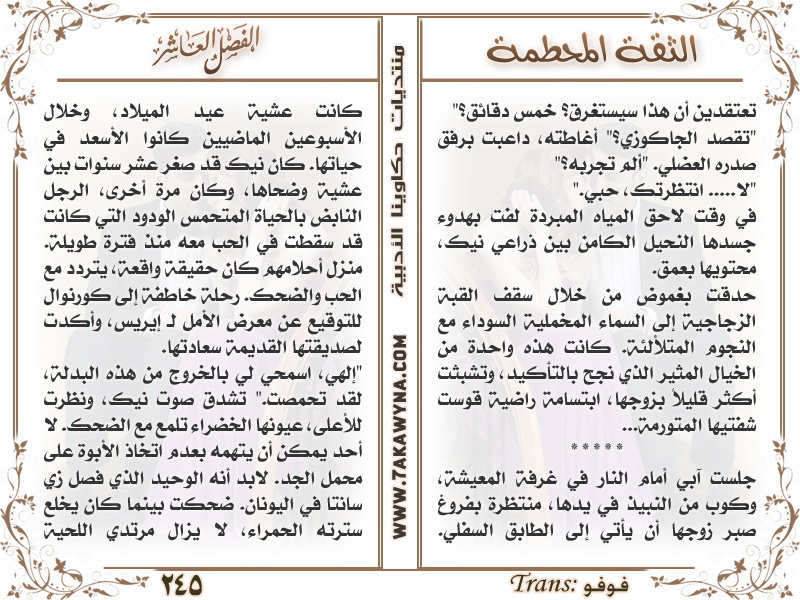 الثقة المحطمة
تعتقدين أن هذا سيستغرق؟ خمس دقائق؟"
"تقصد الجاكوزي؟" أغاظته، داعبت برفق
صدره العضلي. "ألم تجربه؟"
"لا..... انتظرتك، حبي."
في وقت لاحق المياه المبردة لفت بهدوء
جسدها النحيل الكامن بين ذراعي نيك،
محتويها بعمق.
حدقت بغموض من خلال سقف القبة
الزجاجية إلى السماء المخملية السوداء مع
النجوم المتلألئة. كانت هذه واحدة من
الخيال المثير الذي نجح بالتأكيد، وتشبثت
أكثر قليلاً بزوجها، ابتسامة راضية قوست
شفتيها المتورمة...
*****
جلست آبي أمام النار في غرفة المعيشة،
وكوب من النبيذ في يدها، منتظرة بفروغ
صبر زوجها أن يأتي إلى الطابق السفلي.
منتديات حكاوينا الأدبية
WWW.7AKAWYNA.COM
الفصل العاشر
كانت عشية عيد الميلاد، وخلال
الأسبوعين الماضيين كانوا الأسعد في
حياتها. كان نيك قد صغر عشر سنوات بين
عشية وضحاها، وكان مرة أخرى، الرجل
النابض بالحياة المتحمس الودود التي كانت
قد سقطت في الحب معه منذ فترة طويلة.
منزل أحلامهم كان حقيقة واقعة، يتردد مع
الحب والضحك. رحلة خاطفة إلى كورنوال
للتوقيع عن معرض الأمل لـ إيريس، وأكدت
لصديقتها القديمة سعادتها.
"إلهي، اسمحي لي بالخروج من هذه البدلة،
لقد تحمصت." تشدق صوت نيك، ونظرت
للأعلى، عيونها الخضراء تلمع مع الضحك. لا
أحد يمكن أن يتهمه بعدم اتخاذ الأبوة على
محمل الجد. لابد أنه الوحيد الذي فصل زي
سانتا في اليونان. ضحكت بينما كان يخلع
سترته الحمراء، لا يزال مرتدي اللحية
Trans: فوفو
٢٤٥